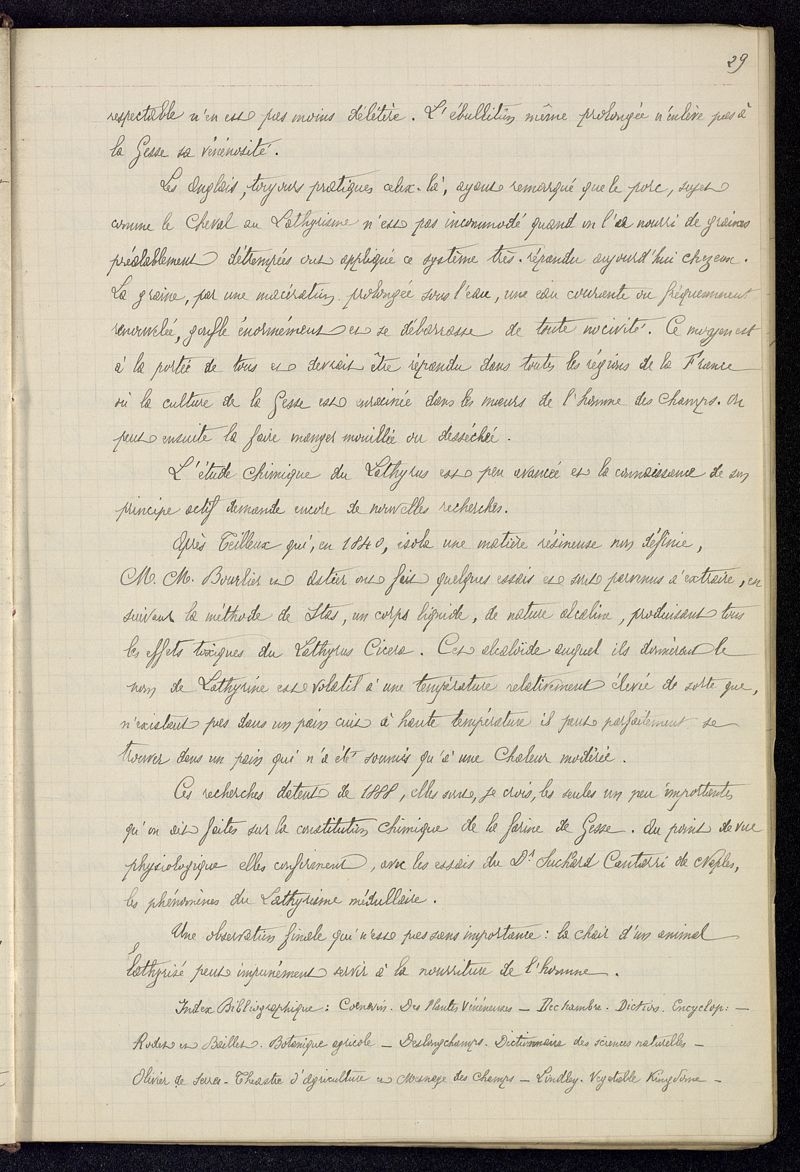 29
respectable n'en est pas moins délétère. L'ébullition même prolongée n'enlève pas à
la Gesse sa vénénosité.
Les Anglais, toujours pratiques ceux-là, ayant remarqué que le porc, sujet
comme le Cheval au Lathyrisme n'est pas incommodé quand on l'a nourri de graines
préalablement détrempées ont appliqué ce système très-répandu aujourd'hui chez eux.
La graine, par une macération prolongée sous l'eau, une eau courante ou fréquemment
renouvelée, gonfle énormément et se débarrasse de toute nocivité. Ce moyen est
à la portée de tous et devrait être répandu dans toutes les régions de la France
où la culture de la Gesse est enracinée dans les mœurs de l'homme des Champs. On
peut ensuite la faire manger mouillée ou desséchée.
L'étude chimique du Lathyrus est peu avancée et la connaissance de son
principe actif demande encore de nouvelles recherches.
Après Teilleux qui, en 1840, isola une matière résineuse non définie,
M. M. Bourlier et Astier ont fait quelques essais et sont parvenus à extraire, en
suivant la méthode de Stas, un corps liquide, de nature alcaline, produisant tous
les effets toxiques du Lathyrus Cicera. Cet alcaloïde auquel ils donnèrent le
nom de Lathyrine est volatil à une température relativement élevée de sorte que,
n'existant pas dans un pain cuit à haute température il peut parfaitement se
trouver dans un pain qui n'a été soumis qu'à une Chaleur modérée.
Ces recherches datent de 1888, elles sont, je crois, les seules un peu importantes
qu'on ait faites sur la constitution chimique de la farine de Gesse. Au point de vue
physiologique elles confirment, avec les essais du Dr Suchard Cantarri de Naples,
les phénomènes du Lathyrisme médullaire.
Une observation finale qui n'est pas sans importance : la chair d'un animal
lathyrisé peut impunément servir à la nourriture de l'homme.
Index Bibliographique : Cornevin. Des Plantes Vénéneuses — Dechambre. Diction. Encyclop: —
Rodet et Baillet. Botanique agricole — Deslongchamps. Dictionnaire des sciences naturelles —
Olivier de Serres - Theastre d'agriculture et Mesnage des Champs — Lindley. Vegetable Kingdome —